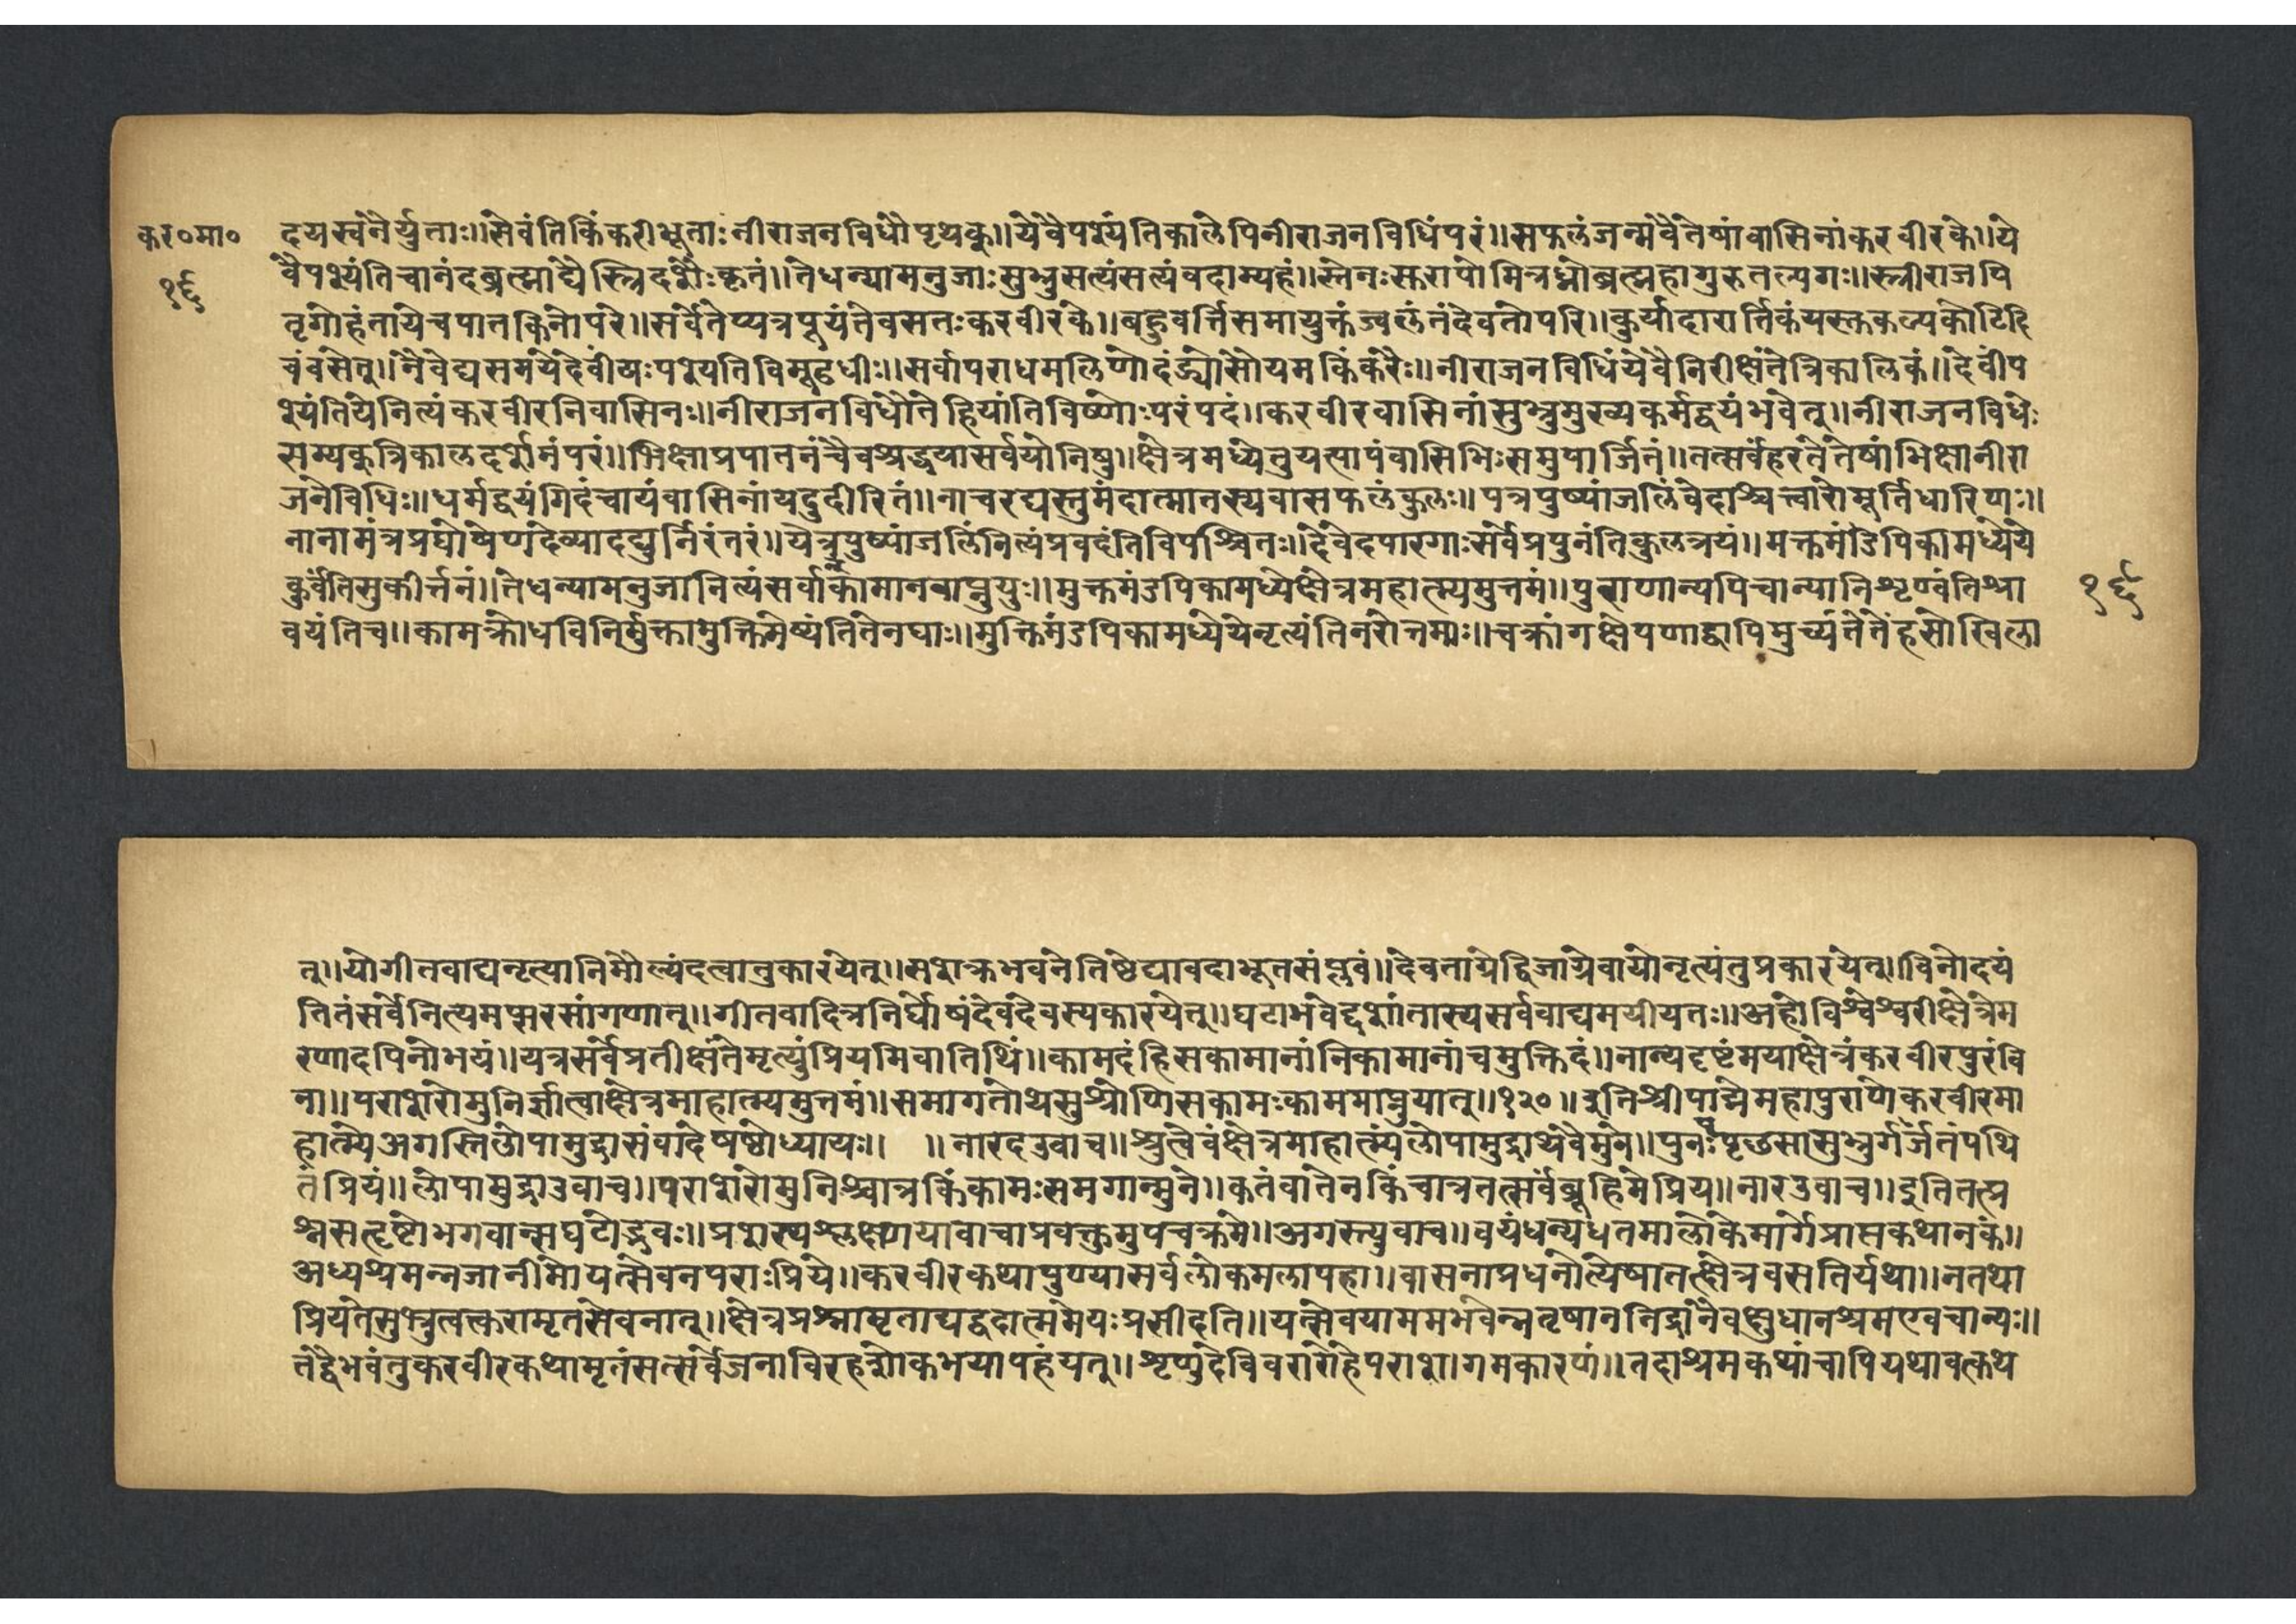 कर०मा०
१६
दयस्वनैर्युताः॥सेवंतिकिंकरीभूताःनीराजनविधौपृथक्॥येवैपश्यंतिकालेपिनीराजनविधिंपरं॥सफलंजन्मवैतेषांवासिनांकरवीरके॥ये
वैपश्यंतिचानंदब्रह्माद्यैस्त्रिदशैःकृतं॥तेधन्यामनुजाःसुभ्रुसत्यंसत्यंवदाम्यहं॥स्तेनःसुरापोमित्रध्रोब्रह्महागुरुतल्पगः॥स्त्रीराजपि
तृगोहंतायेचपातकिनोपरे॥सर्वेतेप्यत्रपूयंतेवसतःकरवीरके॥बहुवर्त्तिसमायुक्तंज्वलंतंदेवतोपरि॥कुर्यादारार्तिकंयस्तुकल्पकोटिदि
वंवसेत्॥नैवेद्यसमयेदेवींयःपश्यतिविमूढधीः॥सर्वापराधमलिणोदंड्योसौयमकिंकरैः॥नीराजनविधिंयेवैनिरीक्षंतेत्रिकालिकं॥देवींप
श्यंतियेनित्यंकरवीरनिवासिनः॥नीराजनविधौतेहियांतिविष्णोःपरंपदं॥करवीरवासिनांसुभ्रुमुख्यकर्मद्वयंभवेत्॥नीराजनविधेः
सम्यक्त्रिकालदर्शनंपरं॥भिक्षाप्रपातनंचैवश्रद्धयासर्वयोनिषु॥क्षेत्रमध्येतुयत्पापंवासिभिःसमुपार्जितं॥तत्सर्वंहरतेतेषांभिक्षानीरा
जनेविधिः॥धर्मद्वयंगिदंचायंवासिनांयदुदीरितं॥नाचरद्यस्तुमंदात्मातस्यवासफलंकुलः॥पत्रपुष्पांजलिंवेदाश्चत्वारोमूर्तिधारिणः॥
नानामंत्रप्रघोषेणदेव्यादद्युर्निरंतरं॥येत्रपुष्पांजलिंनित्यंप्रवदंतिविपश्चितः॥देवेदपारगाःसर्वेप्रपुनंतिकुलत्रयं॥मक्तमंडिपिकामध्येये
कुर्वंतिसुकीर्त्तनं॥तेधन्यामनुजानित्यंसर्वान्कामानवाप्नुयुः॥मुक्तमंडपिकामध्येक्षेत्रमहात्म्यमुत्तमं॥पुराणान्यपिचान्यानिशृण्वंतिश्रा
वयंतिच॥कामक्रोधविनिर्मुक्तामुक्तिमेष्यंतितेनघाः॥मुक्तिमंडपिकामध्येयेनृत्यंतिनरोत्तमाः॥चक्रांगक्षेपणाद्वापिमुच्यंतेतेंहसोखिला
१६
त्॥योगीतवाद्यनृत्यानिमौल्यंदत्वातुकारयेत्॥सशक्रभवनेतिष्ठेद्यावदाभूतसंप्लवं॥देवताग्रेद्विजाग्रेवायोनृत्यंतुप्रकारयेत्॥विनोदयं
तितंसर्वेनित्यमप्सरसांगणात्॥गीतवादित्रनिर्घोषंदेवदेवस्यकारयेत्॥घटाभवेद्दशांतास्यसर्ववाद्यमयीयतः॥अहोविश्वेश्वरीक्षेत्रेम
रणादपिनोभयं॥यत्रसर्वेप्रतीक्षंतेमृत्युंप्रियमिवातिथिं॥कामदंहिसकामानांनिकामानांचमुक्तिदं॥नान्यदृष्टंमयाक्षेत्रंकरवीरपुरंवि
ना॥पराशरोमुनिर्ज्ञात्वाक्षेत्रमाहात्म्यमुत्तमं॥समागतोथसुश्रोणिसकामःकाममाप्नुयात्॥१२०॥इतिश्रीपाद्मेमहापुराणेकरवीरमा
हात्म्येअगस्तिलोपामुद्रासंवादेषष्ठोध्यायः॥ ॥नारदउवाच॥श्रुत्वैवंक्षेत्रमाहात्म्यंलोपामुद्राथवैमुने॥पुनःपपृछसासुभ्रुर्गर्जतंपथि
तंप्रियं॥लोपामुद्राउवाच॥पराशरोमुनिश्चात्रकिंकामःसमगान्मुने॥कतंवातेनकिंचात्रतत्सर्वंब्रूहिमेप्रिय॥नारउवाच॥इतितत्प्र
श्नसत्दृष्टोभगवान्सघटोद्भवः॥प्रशस्यश्लक्ष्णयावाचाप्रवक्तुमुपचक्रमे॥अगस्त्युवाच॥वयंधन्यधतमालोकेमार्गेप्राप्तकथानकं॥
अध्यश्रमन्नजानीमोयत्सेवनपराःप्रिये॥करवीरकथापुण्यासर्वलोकमलापहा॥वासनाप्रधनौत्येषातत्क्षेत्रवसतिर्यथा॥नतथा
प्रियतेसुभ्रुत्वत्करामृतसेवनात्॥क्षेत्रप्रश्नामृताद्यद्वदात्ममेयःप्रसीदति॥यत्सेवयाममभवेन्नतृषाननिद्रानैवक्षुधानश्रमएवचान्यः॥
तंद्वैभवंतुकरवीरकथामृतंसत्सर्वेजनाविरहशोकभयापहंयत्॥शृणुदेविवरारोहेपराशागमकारणं॥तदाश्रमकथांचापियथावत्कथे